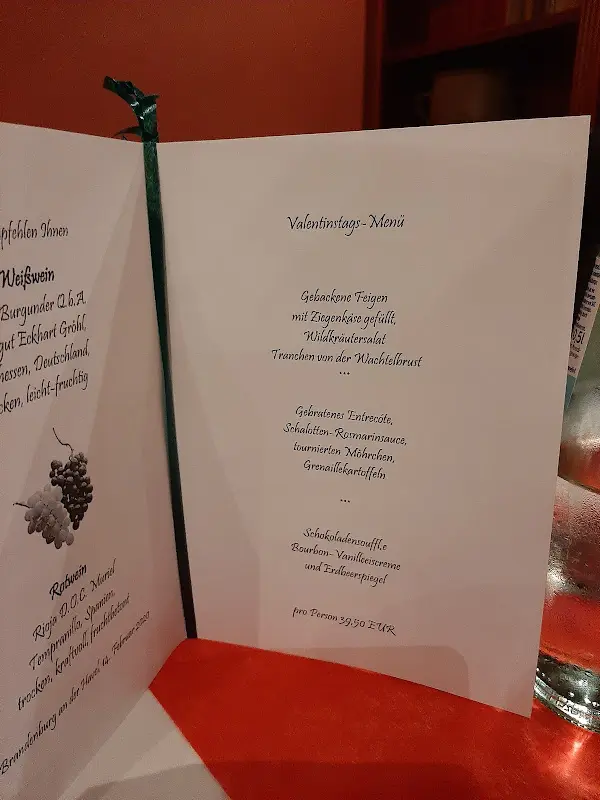 pfehlen Ihnen
Weißwein
Burgunder Q.b.A.
gut Eckhart Gröhl,
hessen, Deutschland,
cken, leicht-fruchtig
Rotwein
Rioja D.O.C. Muriel
Tempranillo, Spanien,
trocken, kraftvoll, fruchtbetont
Brandenburg an der Havel, 14. Februar 2020
Valentinstags-Menü
Gebackene Feigen
mit Ziegenkäse gefüllt,
Wildkräutersalat
Tranchen von der Wachtelbrust
...
Gebratenes Entrecôte,
Schalotten-Rosmarinsauce,
tournierten Möhrchen,
Grenaillekartoffeln
...
Schokoladensouffl,e
Bourbon-Vanilleeiscreme
und Erdbeerspiegel
pro Person 39,50 EUR